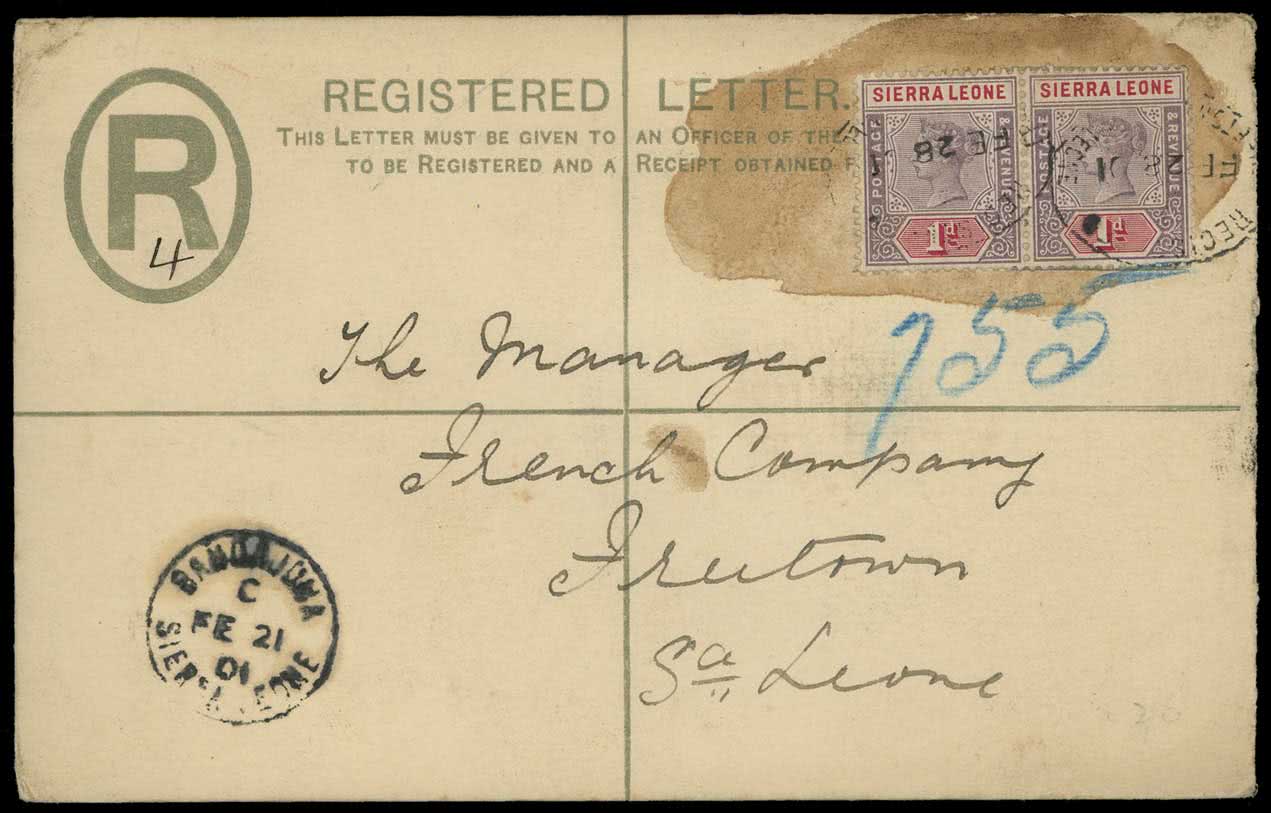 REGISTERED LETTER.
THIS LETTER MUST BE GIVEN TO AN OFFICER OF THE
TO BE REGISTERED AND A RECEIPT OBTAINED F
R
4
SIERRA LEONE
POSTAGE & REVENUE
1d
SIERRA LEONE
POSTAGE & REVENUE
1d
FE 28
FE 28
01
755
The Manager
French Company
Freetown
Sa Leone
BANDAJUMA
C
FE 21
01
SIERRA LEONE